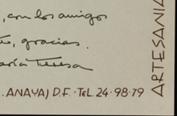 , con los amigos
gracias.
María Teresa
. ANAYA) D.F. · TEL 24-98-79
ARTESANIA